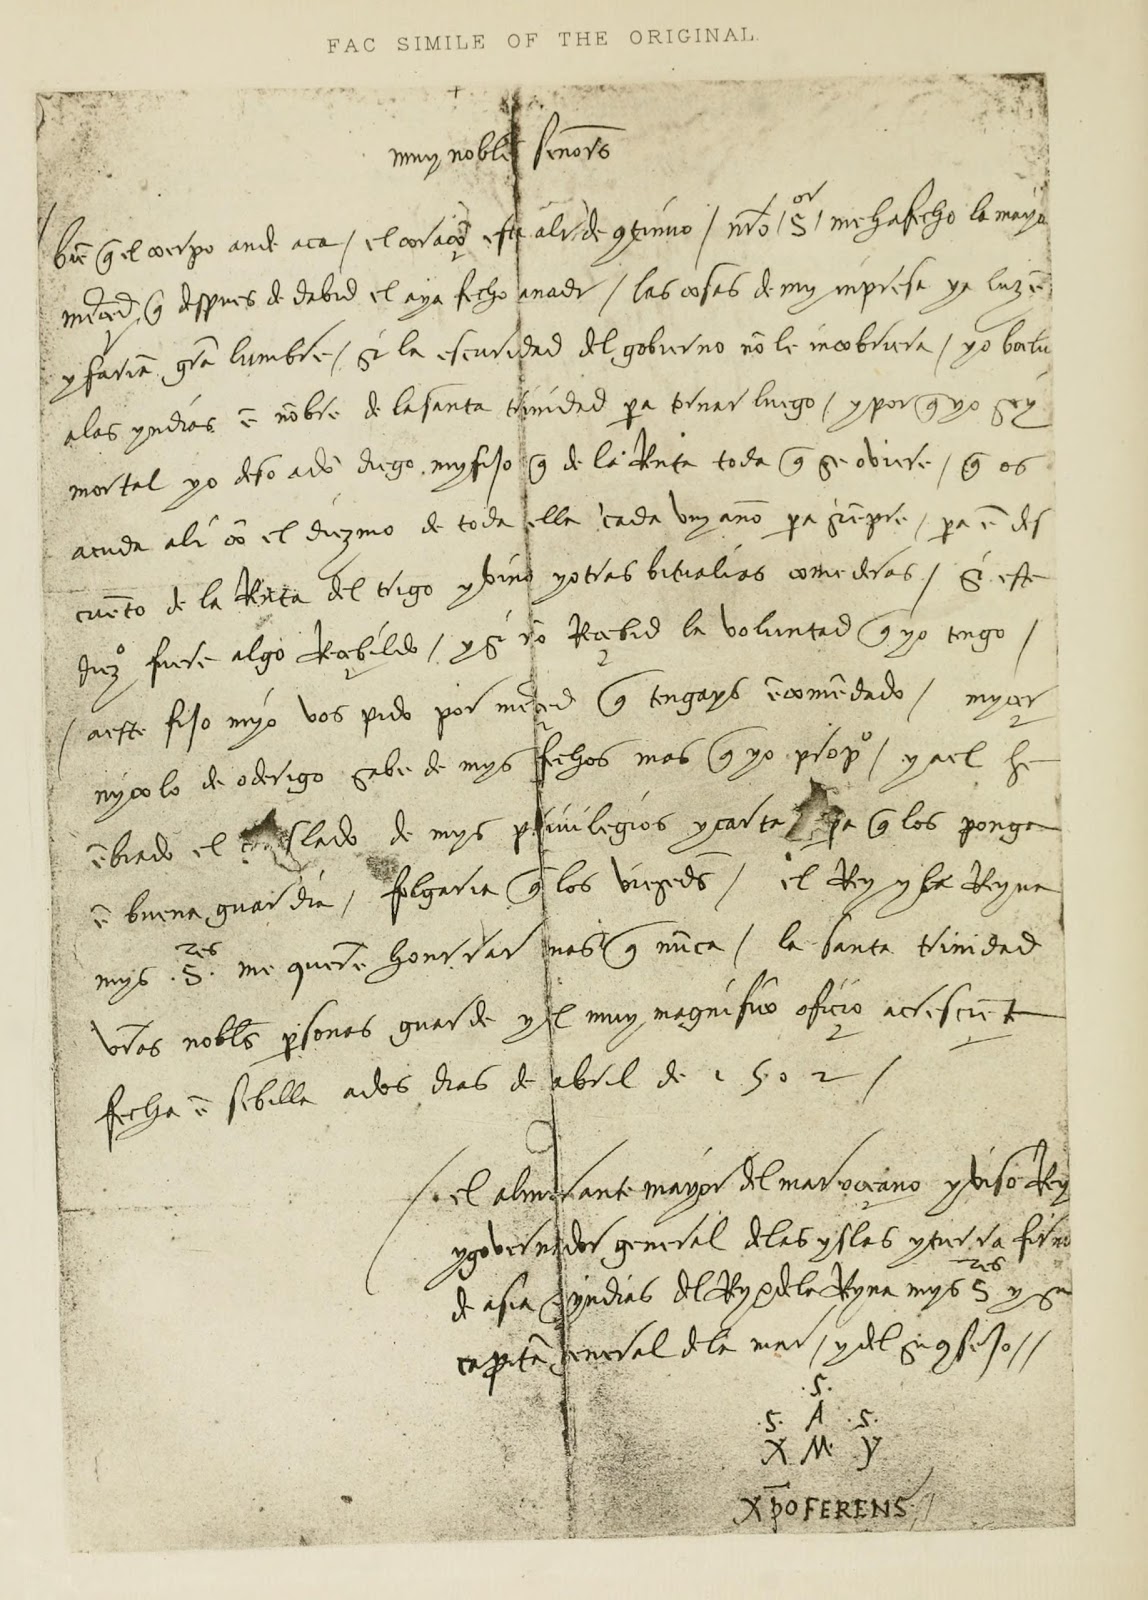 FAC SIMILE OF THE ORIGINAL.
muy nobles señors
bie͂ q̃ el coerpo ande aca / el coraço͂ esta ali de co͂tinuo / nr̃o / S^or / me ha fecho la mayor
merçed q̃ despues de dabid el aya fecho a nadi / las cosas de my inpresa ya luze͂
y faria͂ gra͂ lumbre / si la escuridad del gobierno no͂ le incobriera / yo boelvo
a las yndias e͂ no͂bre de la santa trinidad pa tornar luego / y por q̃ yo soy
mortal yo deso a do͂ diego my fijo q̃ de la Re͂ta toda q̃ se oviere / q̃ os
acuda ali co͂ el diezmo de toda ella cada un año pa sie͂pre / pa e͂ des
cue͂to de la Re͂ta del trigo y vino y otras bitualias comederas / si este
diezº fuere algo Reçebildo / y si no͂ Reçebid la voluntad q̃ yo tengo /
a este fijo myo vos pido por merçed q̃ tengays e͂come͂dado / myçer
nyculo de oderigo sabe de mys fechos mas q̃ yo propº / y a el he
e͂biado el traslado de mys privilegios y cartas pa q̃ los ponga
e͂ buena guardia / folgaria q̃ los viesedes / el Rey y la Reyna
mys .S^res. me quere͂ honrrar mas q̃ nu͂ca / la santa trinidad
vr̃as nobles personas guarde y el muy magnifico ofiçio acresçie͂te
fecha e͂ sebilla a dos dias de abril de 1502 /
el almirante mayor del mar oçeano y viso Rey
y governador general de las yslas y tierra firme
de asia e yndias del Rey e de la Reyna mys S^res y su
capita͂ general de la mar / y del su co͂sejo //
.S.
.S. A .S.
X M Y
Xp͂o FERENS. /